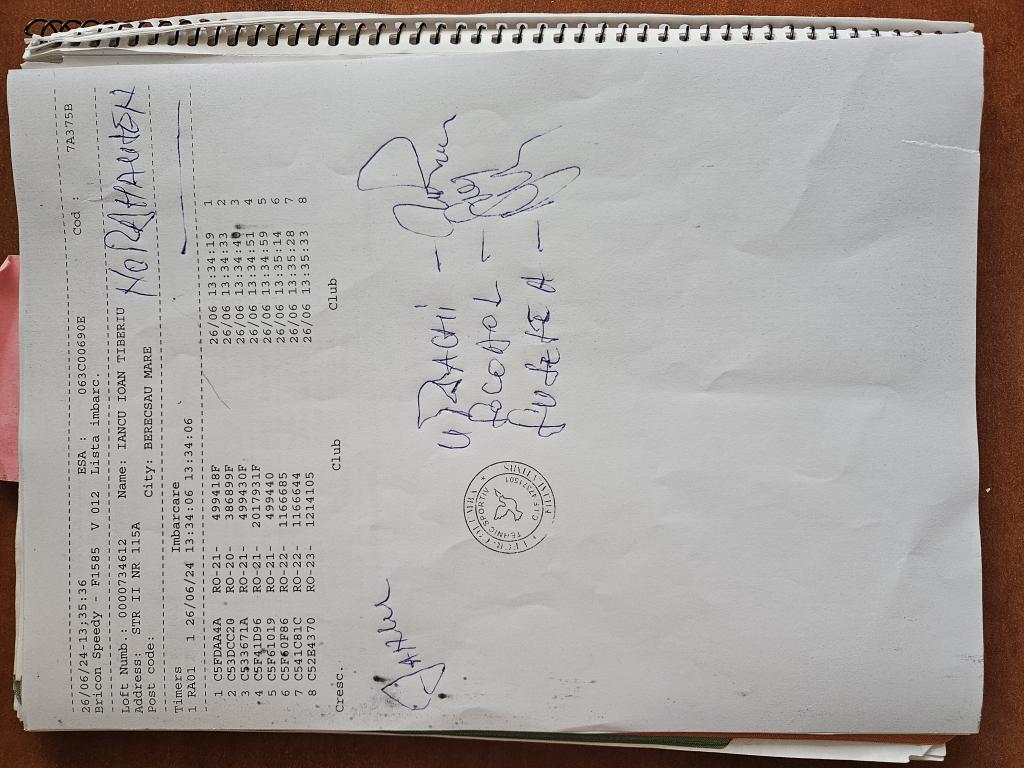 26/06/24-13;35:36 ESA : 063C00690E Cod : 7A375B
Bricon Speedy - F1585 V 012 Lista imbarc.
Loft Numb.: 0000734612 Name: IANCU IOAN TIBERIU
Address: STR II NR 115A
Post code: City: BERECSAU MARE
Timers Imbarcare
1 RA01 1 26/06/24 13:34:06 13:34:06
1 C5FDAA4A RO-21- 499418F 26/06 13:34:19 1
2 C53DCC20 RO-20- 386899F 26/06 13:34:33 2
3 C533671A RO-21- 499430F 26/06 13:34:40 3
4 C5F41D96 RO-21- 2017931F 26/06 13:34:51 4
5 C5F61019 RO-21- 499440 26/06 13:34:59 5
6 C5F60F86 RO-22- 1166685 26/06 13:35:14 6
7 C541C81C RO-22- 1166644 26/06 13:35:28 7
8 C52E4370 RO-23- 1214105 26/06 13:35:33 8
Cresc. Club Club
TEHNIC SPORTIV
CIF 47371501